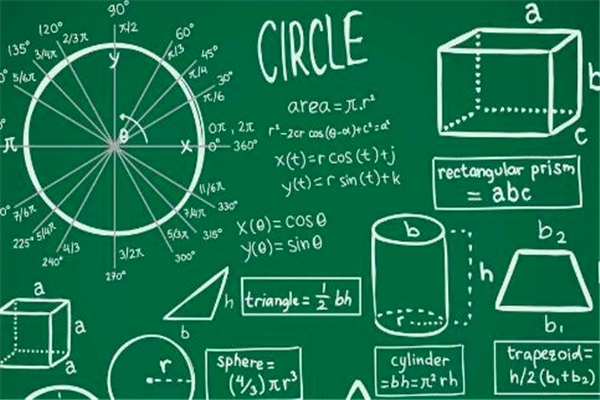 90°
120°
π/2
60°
135°
2/3π
π/3
45°
3/4π
y
π/4
30°
5/6π
π/6
θ
0π, 2π
π
x
0°
360°
11/6π
7/6π
330°
7/4π
225°
5/4π
5/3π
315°
240°
4/3
3/2π
300°
270°
CIRCLE
area=π.r²
r²-2cr cos(θ-α)+c²=a²
x(t)=r cos(t)+j
y(t)=r sin(t)+k
x(θ)=cosθ
y(θ)=sinθ
a
b
c
rectangular prism
=abc
b
h
r
b₂
b₁
h
b
triangle=½bh
a
a
a
r
sphere=
(4/3)πr³
cylinder
=bh=π²rh
trapezoid=
h/2(b₁+b₂)